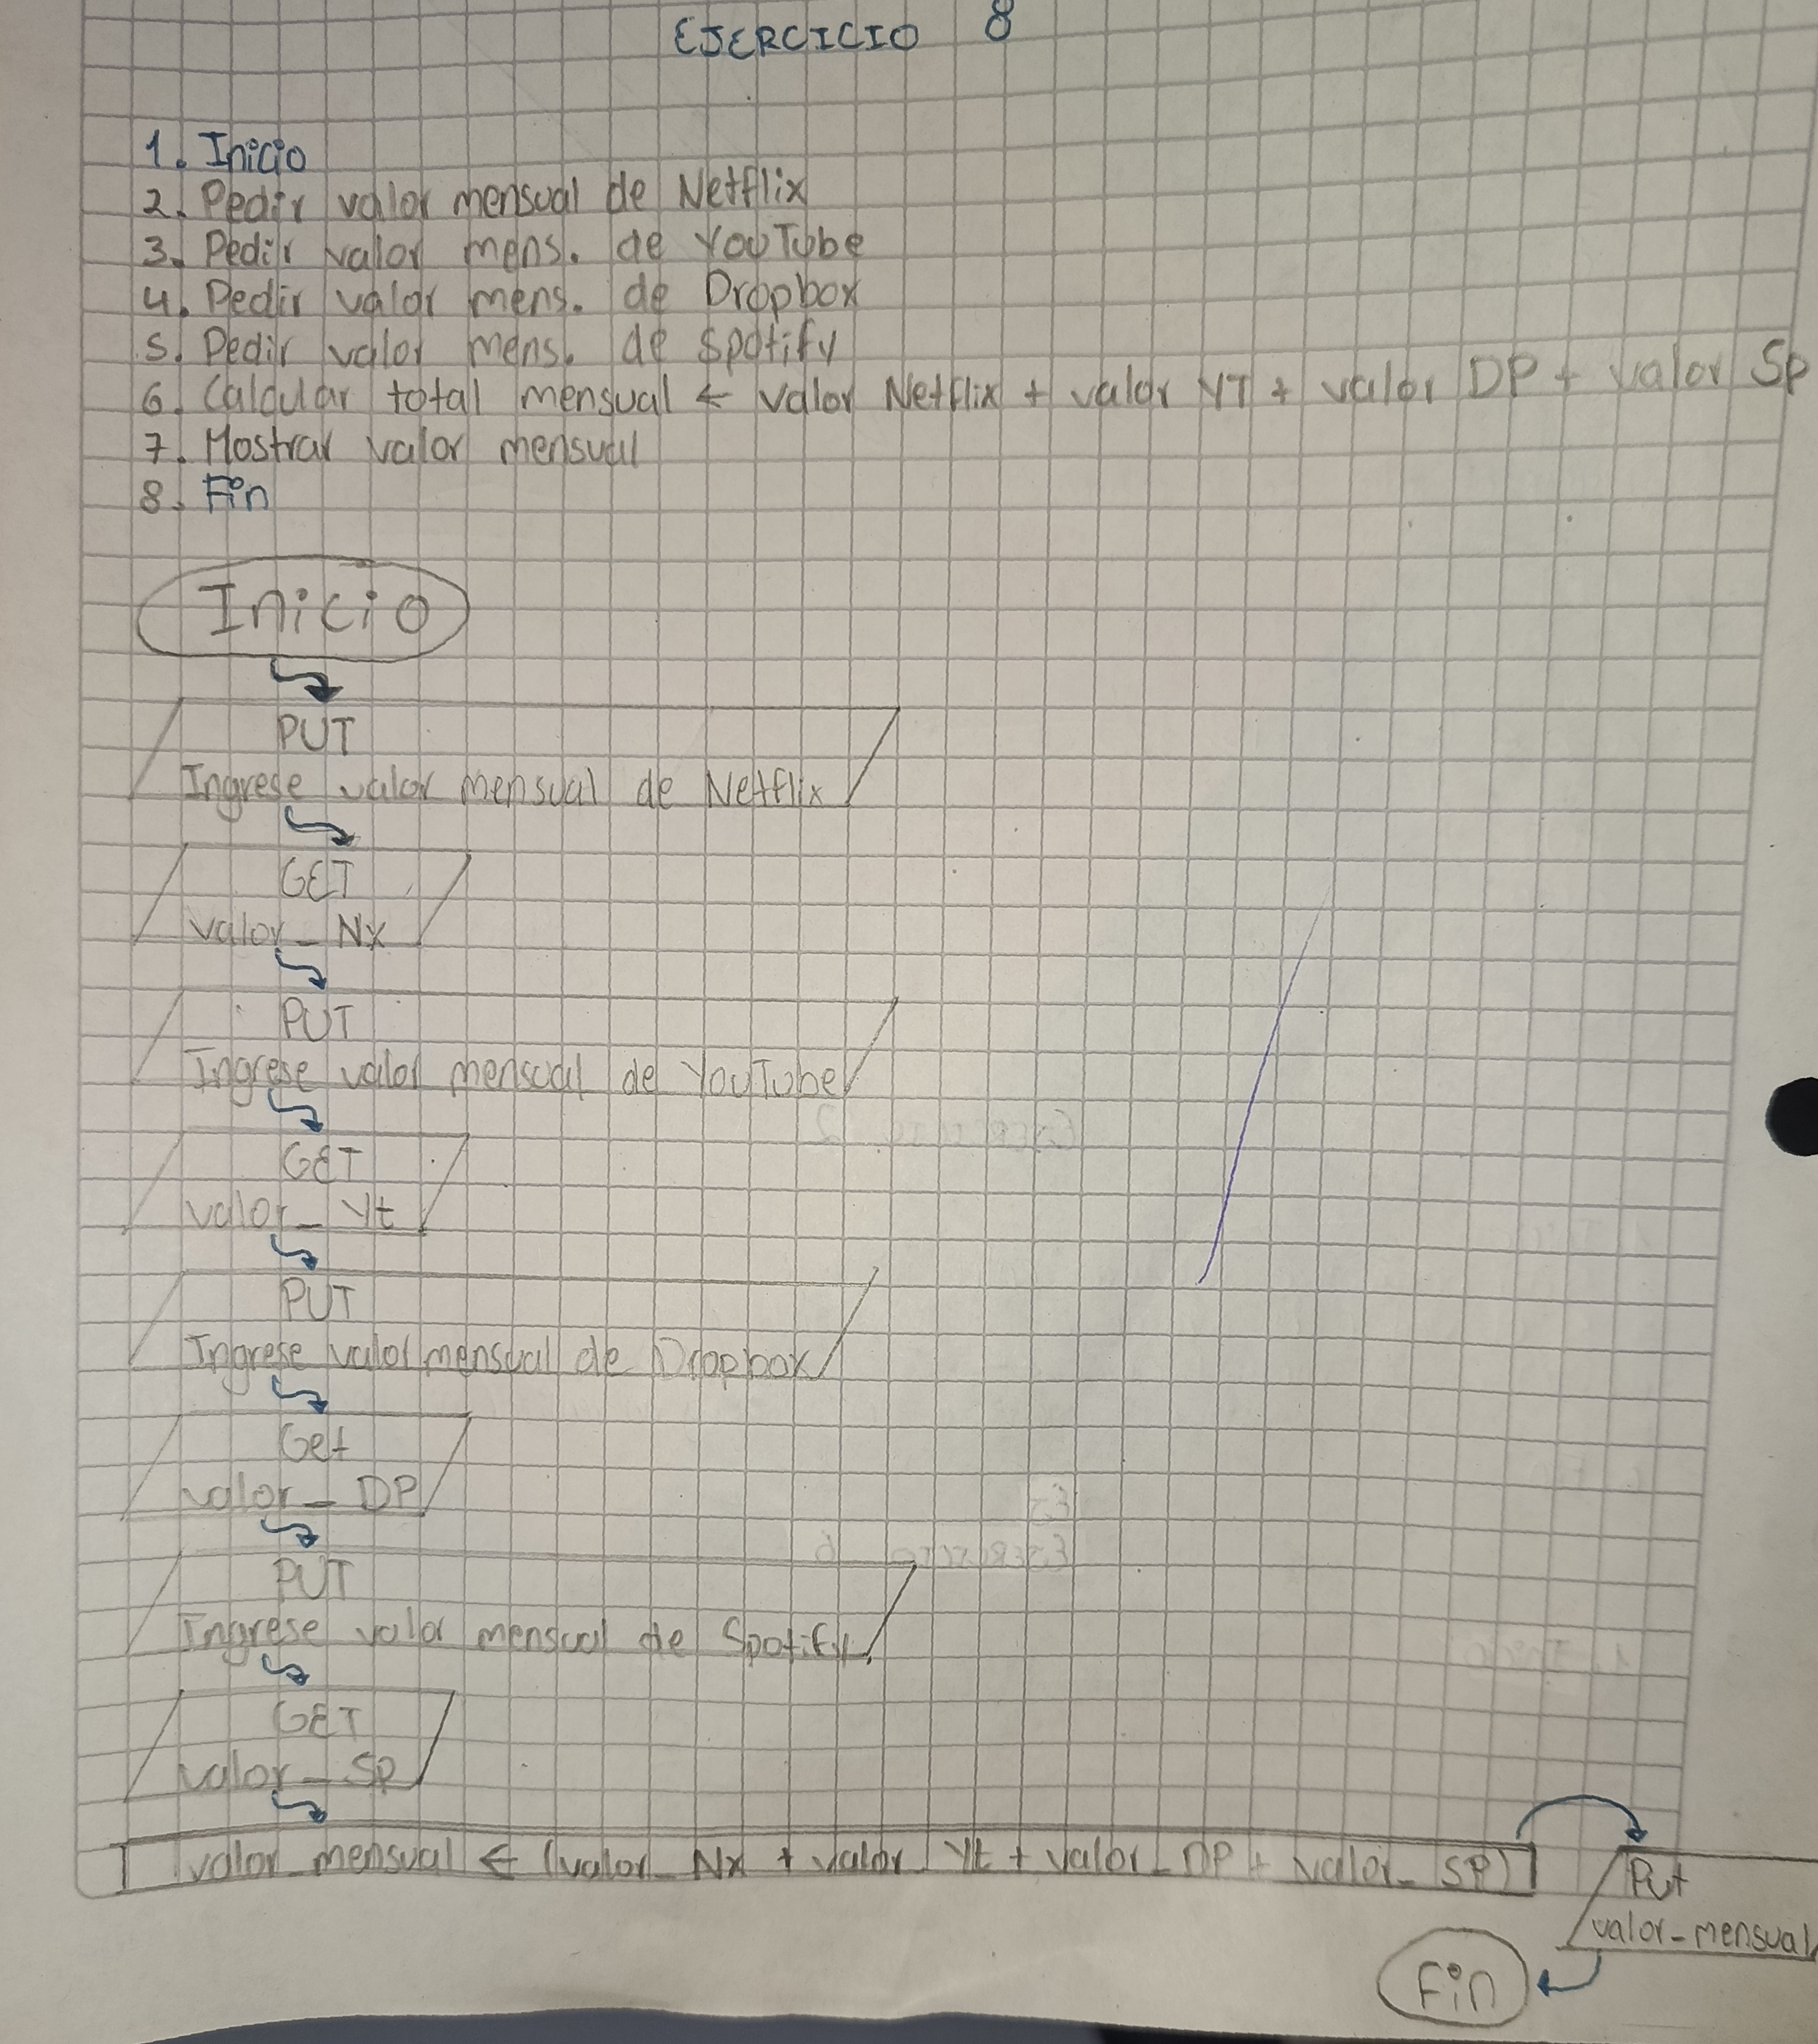 EJERCICIO 8
1. Inicio
2. Pedir valor mensual de Netflix
3. Pedir valor mens. de YouTube
4. Pedir valor mens. de Dropbox
5. Pedir valor mens. de Spotify
6. Calcular total mensual ← valor Netflix + valor YT + valor DP + valor Sp
7. Mostrar valor mensual
8. Fin
Inicio
PUT
Ingrese valor mensual de Netflix
GET
valor_Nx
PUT
Ingrese valor mensual de YouTube
GET
valor_Yt
PUT
Ingrese valor mensual de Dropbox
Get
valor_DP
PUT
Ingrese valor mensual de Spotify
GET
valor_Sp
valor_mensual ← (valor_Nx + valor_Yt + valor_DP + valor_SP)
Put
valor_mensual
Fin